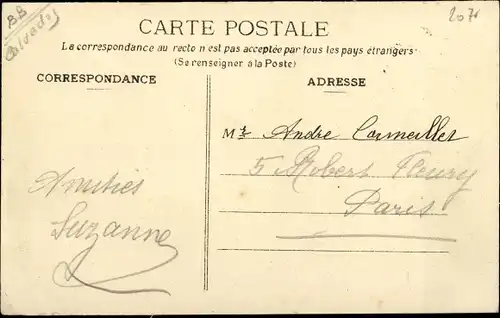 BB
Calvados
207
CARTE POSTALE
La correspondance au recto n'est pas acceptée par tous les pays étrangers
(Se renseigner à la Poste)
CORRESPONDANCE
ADRESSE
Amitiés
Suzanne
Mr Andre Cormeillet
5 Robert Fleury
Paris